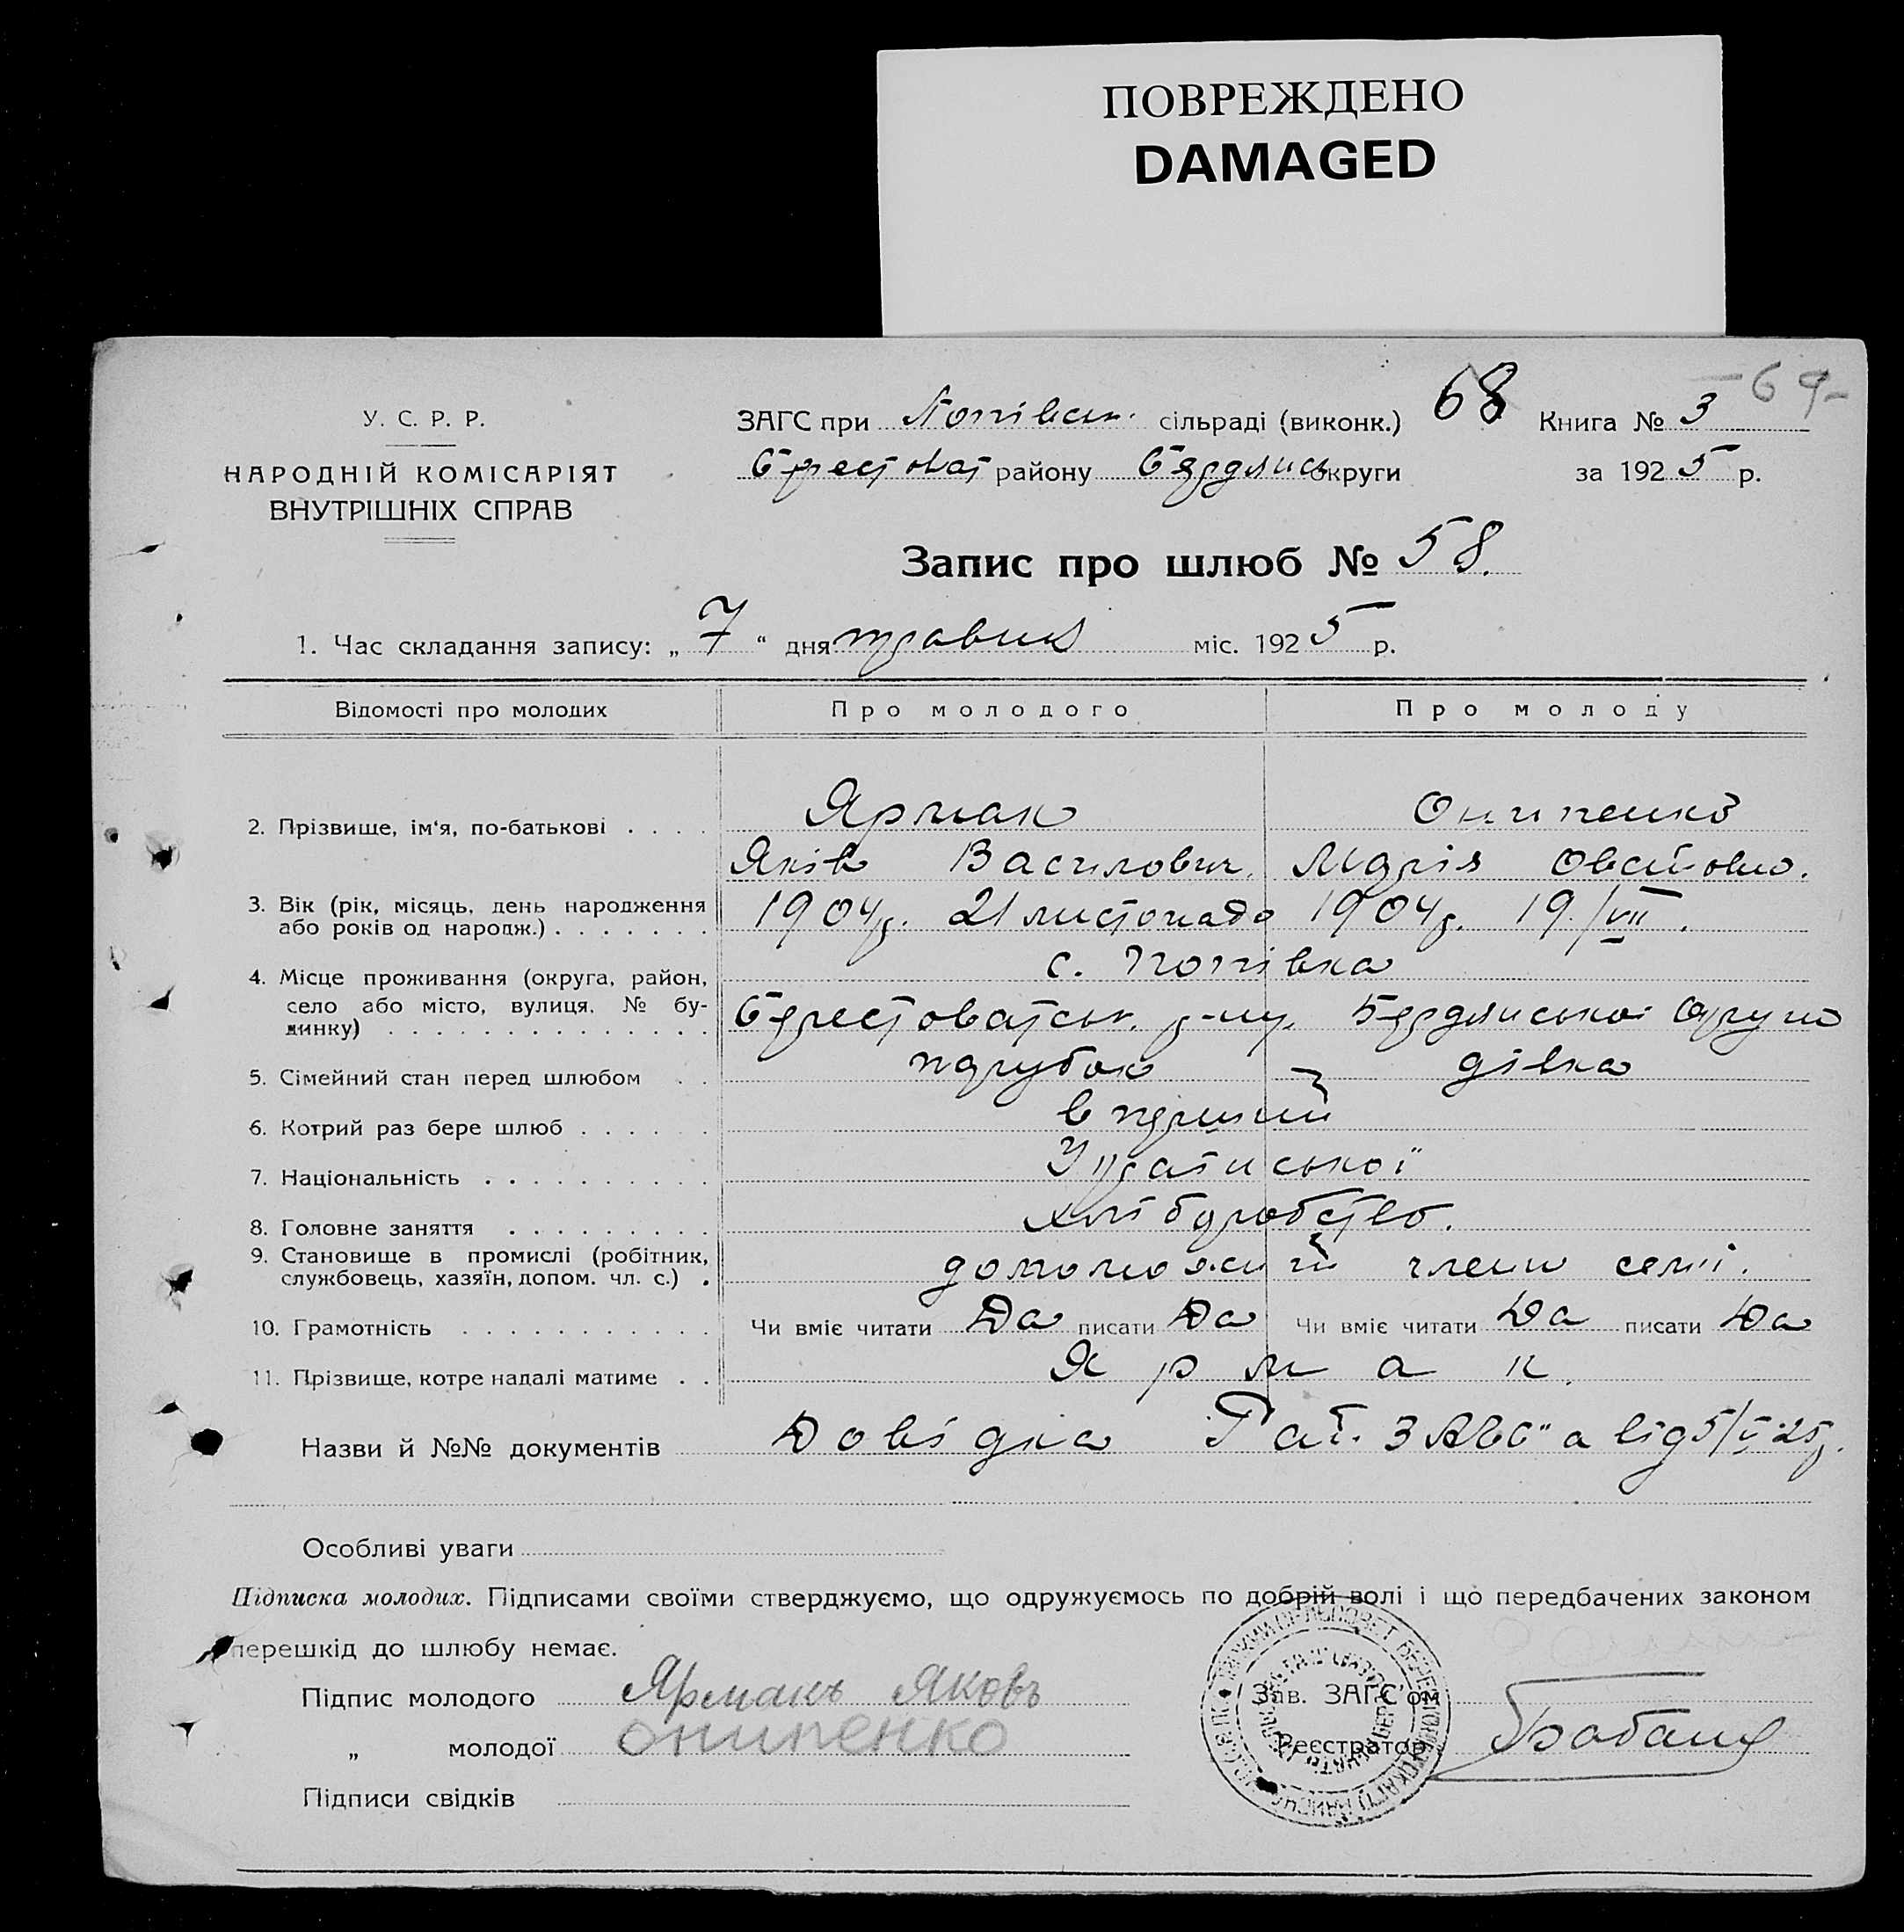 ПОВРЕЖДЕНО
DAMAGED
68
-69-
У. С. Р. Р.
НАРОДНІЙ КОМІСАРІЯТ
ВНУТРІШНІХ СПРАВ
ЗАГС при Попівськ. сільраді (виконк.) Книга № 3
Берестоват району Бердянськ округи за 1925 р.
Запис про шлюб № 58.
1. Час складання запису: „ 7 “ дня травня міс. 1925 р.
Відомості про молодих Про молодого Про молоду
2. Прізвище, ім'я, по-батькові . . . . Ярмак Онипенко
Яків Василович. Марія
3. Вік (рік, місяць, день народження
або років од народж.) . . . . . . . 1904р. 21 листопада 1904р. 19/VII.
4. Місце проживання (округа, район, с. Попівка
село або місто, вулиця, № бу-
динку) . . . . . . . . . . . . . . Берестоватськ. р-ну. Бердянської округи
5. Сімейний стан перед шлюбом . . парубок дівка
6. Котрий раз бере шлюб . . . . . . в перший
7. Національність . . . . . . . . . . Української
8. Головне заняття . . . . . . . . . хліборобство.
9. Становище в промислі (робітник,
службовець, хазяїн, допом. чл. с.) . член семії.
10. Грамотність . . . . . . . . . . . Чи вміє читати Да писати Да Чи вміє читати Да писати Да
11. Прізвище, котре надалі матиме . . Ярмак.
Назви й №№ документів Довідка Рай. ЗАГС"а від 5/V-25р.
Особливі уваги
Підписка молодих. Підписами своїми стверджуємо, що одружуємось по добрій волі і що передбачених законом
перешкід до шлюбу немає.
Підпис молодого Ярмакъ Яковъ Зав. ЗАГС'ом
„ молодої онипенко Реєстратор
Підписи свідків